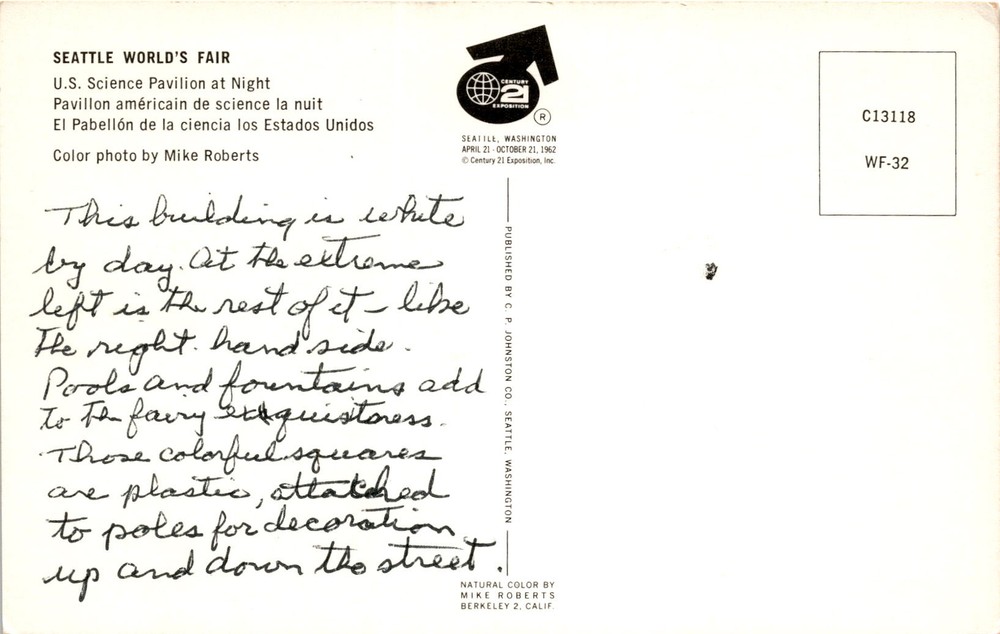 SEATTLE WORLD'S FAIR
U.S. Science Pavilion at Night
Pavillon américain de science la nuit
El Pabellón de la ciencia los Estados Unidos
Color photo by Mike Roberts
This building is white
by day. At the extreme
left is the rest of it – like
the right hand side.
Pools and fountains add
to the fairy exquistness.
Those colorful squares
are plastic, attatched
to poles for decoration
up and down the street.
CENTURY
21
EXPOSITION
®
SEATTLE, WASHINGTON
APRIL 21 - OCTOBER 21, 1962
© Century 21 Exposition, Inc.
PUBLISHED BY C. P. JOHNSTON CO., SEATTLE, WASHINGTON
NATURAL COLOR BY
MIKE ROBERTS
BERKELEY 2, CALIF.
C13118
WF-32